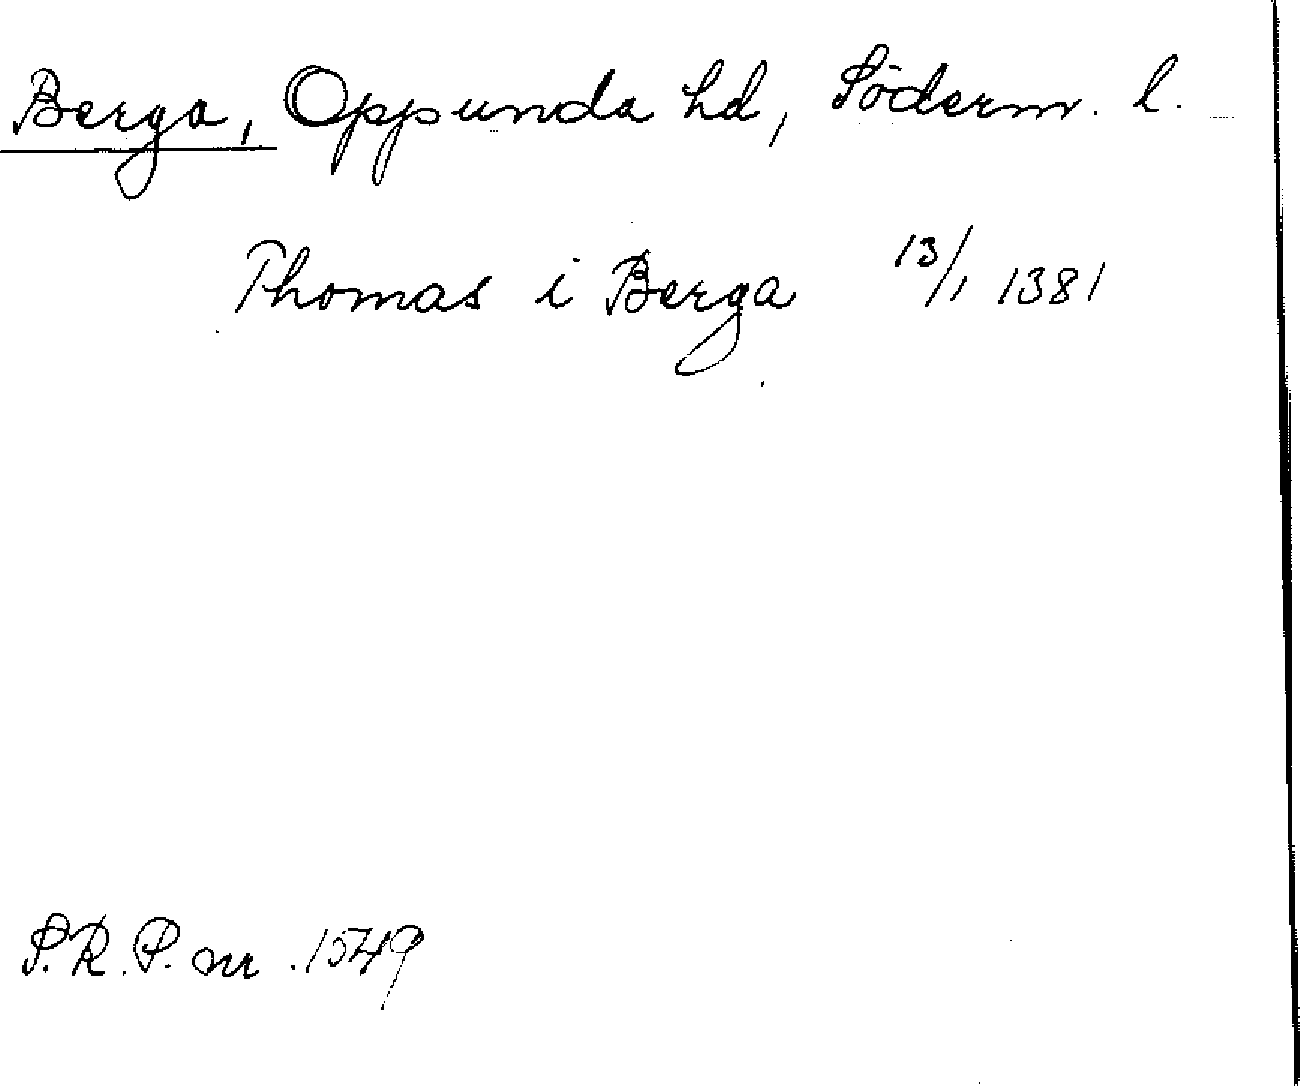 Berga, Oppunda hd, Söderm. l.
Thomas i Berga 13/1 1381
S.R.P. nr. 1549